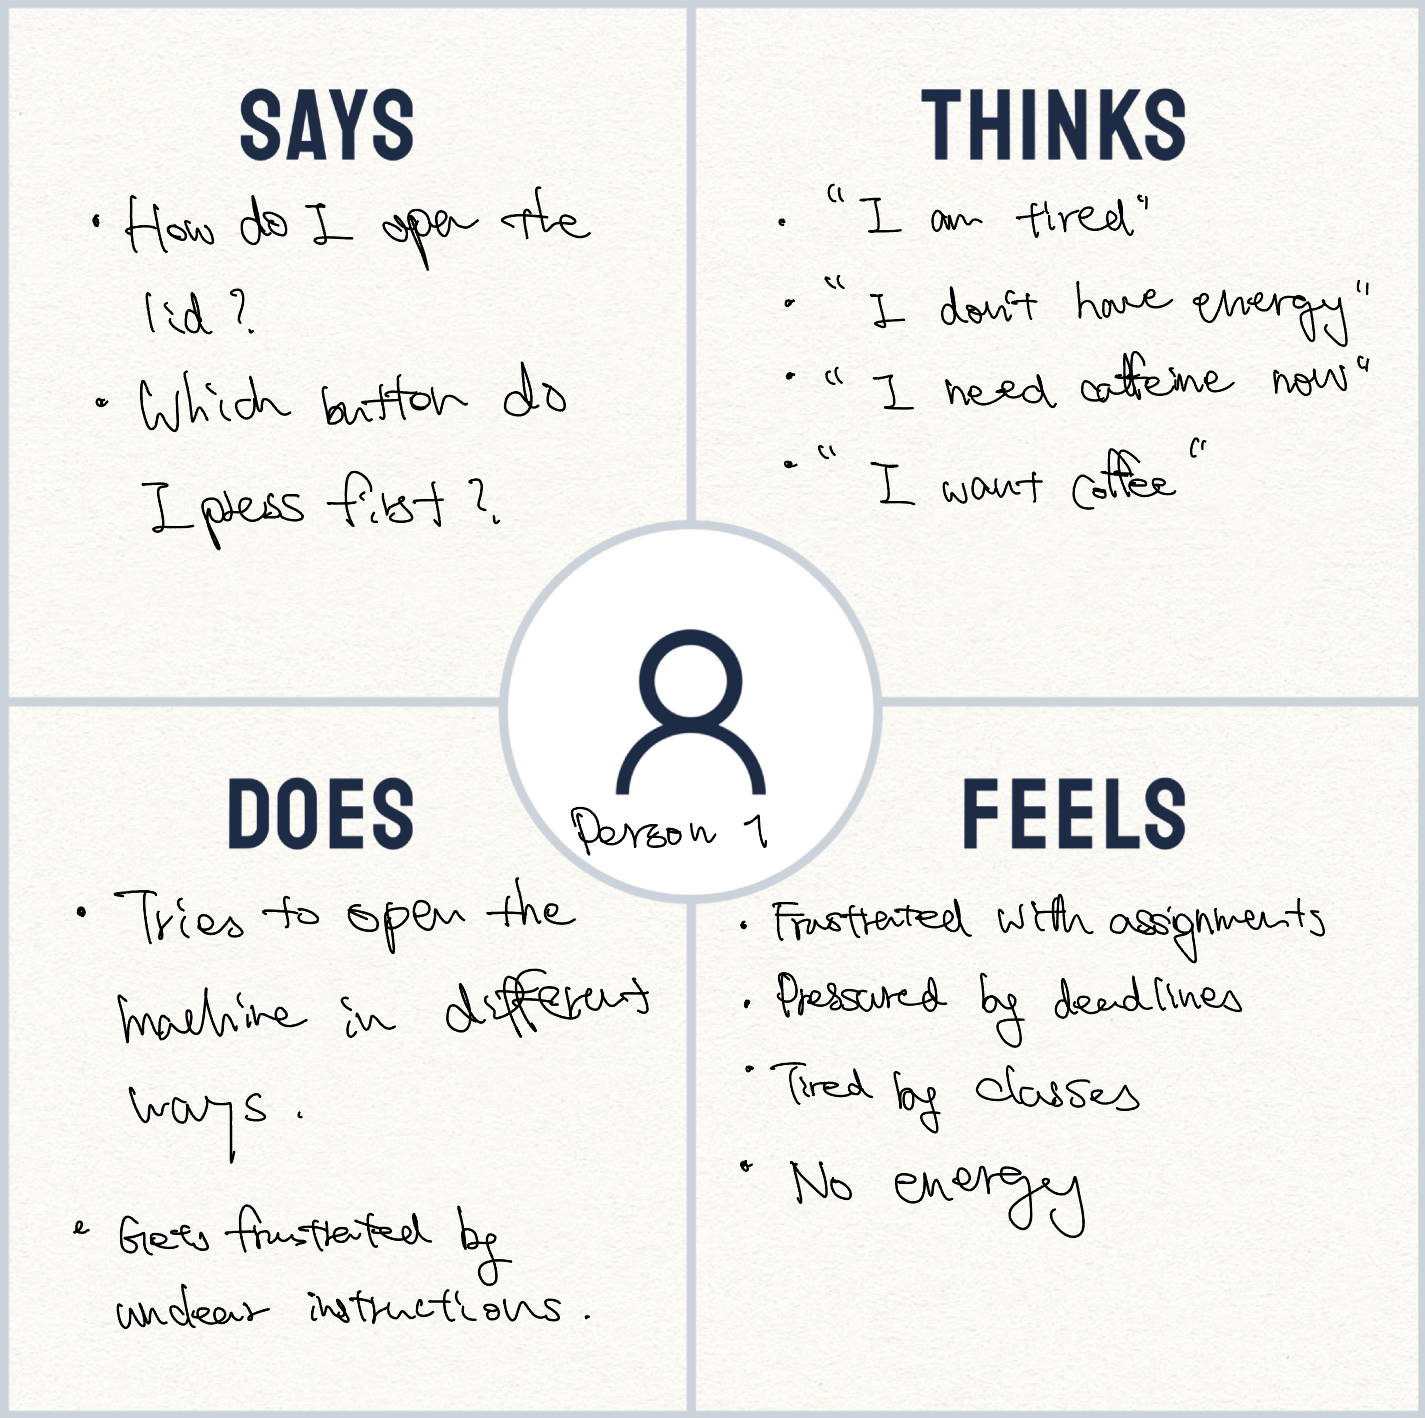 SAYS
• How do I open the
lid?
• Which button do
I press first?
THINKS
• "I am tired"
• "I don't have energy"
• "I need caffeine now"
• "I want coffee"
Person 1
DOES
• Tries to open the
machine in different
ways.
• Gets frustrated by
unclear instructions.
FEELS
• Frustrated with assignments
• Pressured by deadlines
• Tired by classes
• No energy